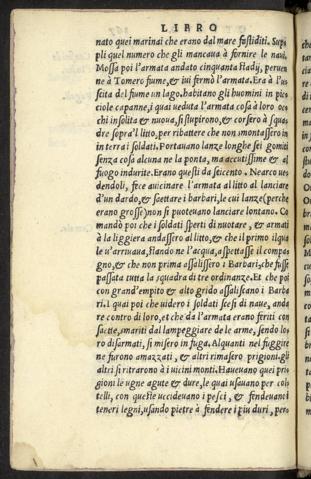 LIBRO
nato quei marinai che erano dal mare fastiditi. Sup
plì quel numero che gli mancaua à fornire le naui.
Mossa poi l'armata andato cinquanta stadij, peruen
ne à Tomero fiume, & iui firmò l'armata. Era à l'u
scita del fiume un lago. habitano gli huomini in pic
ciole capanne, i quai ueduta l'armata cosa à loro oc
chi insolita & nuoua, si stupirono, & corsero à squa
dre sopra'l litto, per ribattere che non smontassero in
in terra i soldati. Portauano lanze longhe sei gomiti
senza cosa alcuna ne la ponta, ma accutissime & al
fuogo indurite. Erano questi da seicento. Nearco ues
dendoli, fece auicinare l'armata al litto al lanciare
d'un dardo, & saettare i barbari, le cui lanze (perche
erano grosse) non si puoteuano lanciare lontano. Co
mandò poi che i soldati sperti di nuotare, & armati
à la liggiera andassero al litto, & che il primo ilqua
le u'arriuaua, stando ne l'acqua, aspettasse il compa
gno, & che non prima assalissero i Barbari, che fusse
passata tutta la squadra di tre ordinanze. Et che poi
con grand'empito & alto grido assaliscano i Barba
ri. I quai poi che uidero i soldati scesi di naue, anda
re contro di loro, et che da l'armata erano feriti con
saette, smariti dal lampeggiare de le arme, sendo lo
ro disarmati, si misero in fuga. Alquanti nel fuggire
ne furono amazzati, & altri rimasero prigioni. gli
altri si ritrarono à i uicini monti. Haueuano quei pri
gioni le ugne agute & dure, le quai usauano per col
telli, con queste uccideuano i pesci, & fendeuano i
teneri legni, usando pietre à fendere i piu duri, pero